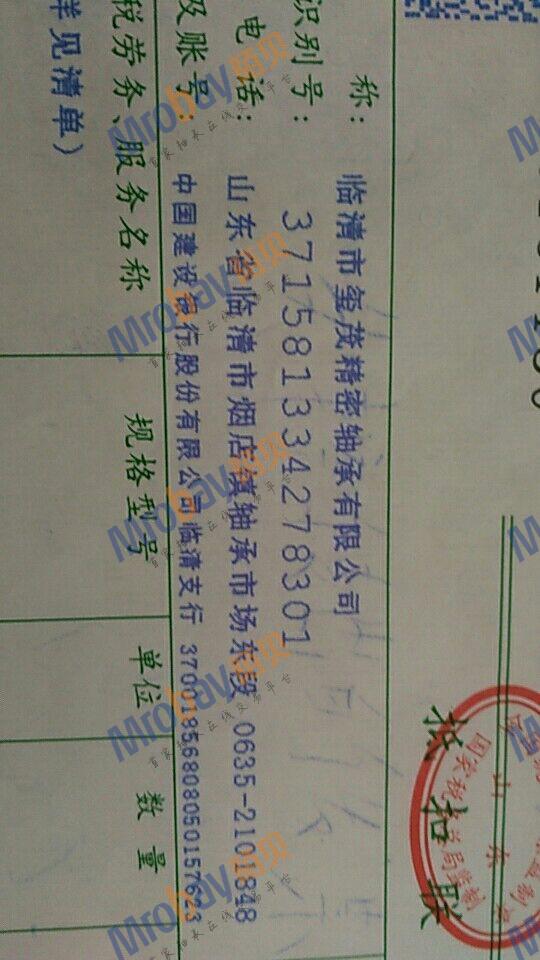 抵扣联
称：临清市玺茂精密轴承有限公司
识别号：371581334278301
电话：山东省临清市烟店镇轴承市场东段 0635-2101848
及账号：中国建设银行股份有限公司临清支行 37001856808050157623
税劳务、服务名称 规格型号 单位 数量
详见清单）
Mrobay 陌贝